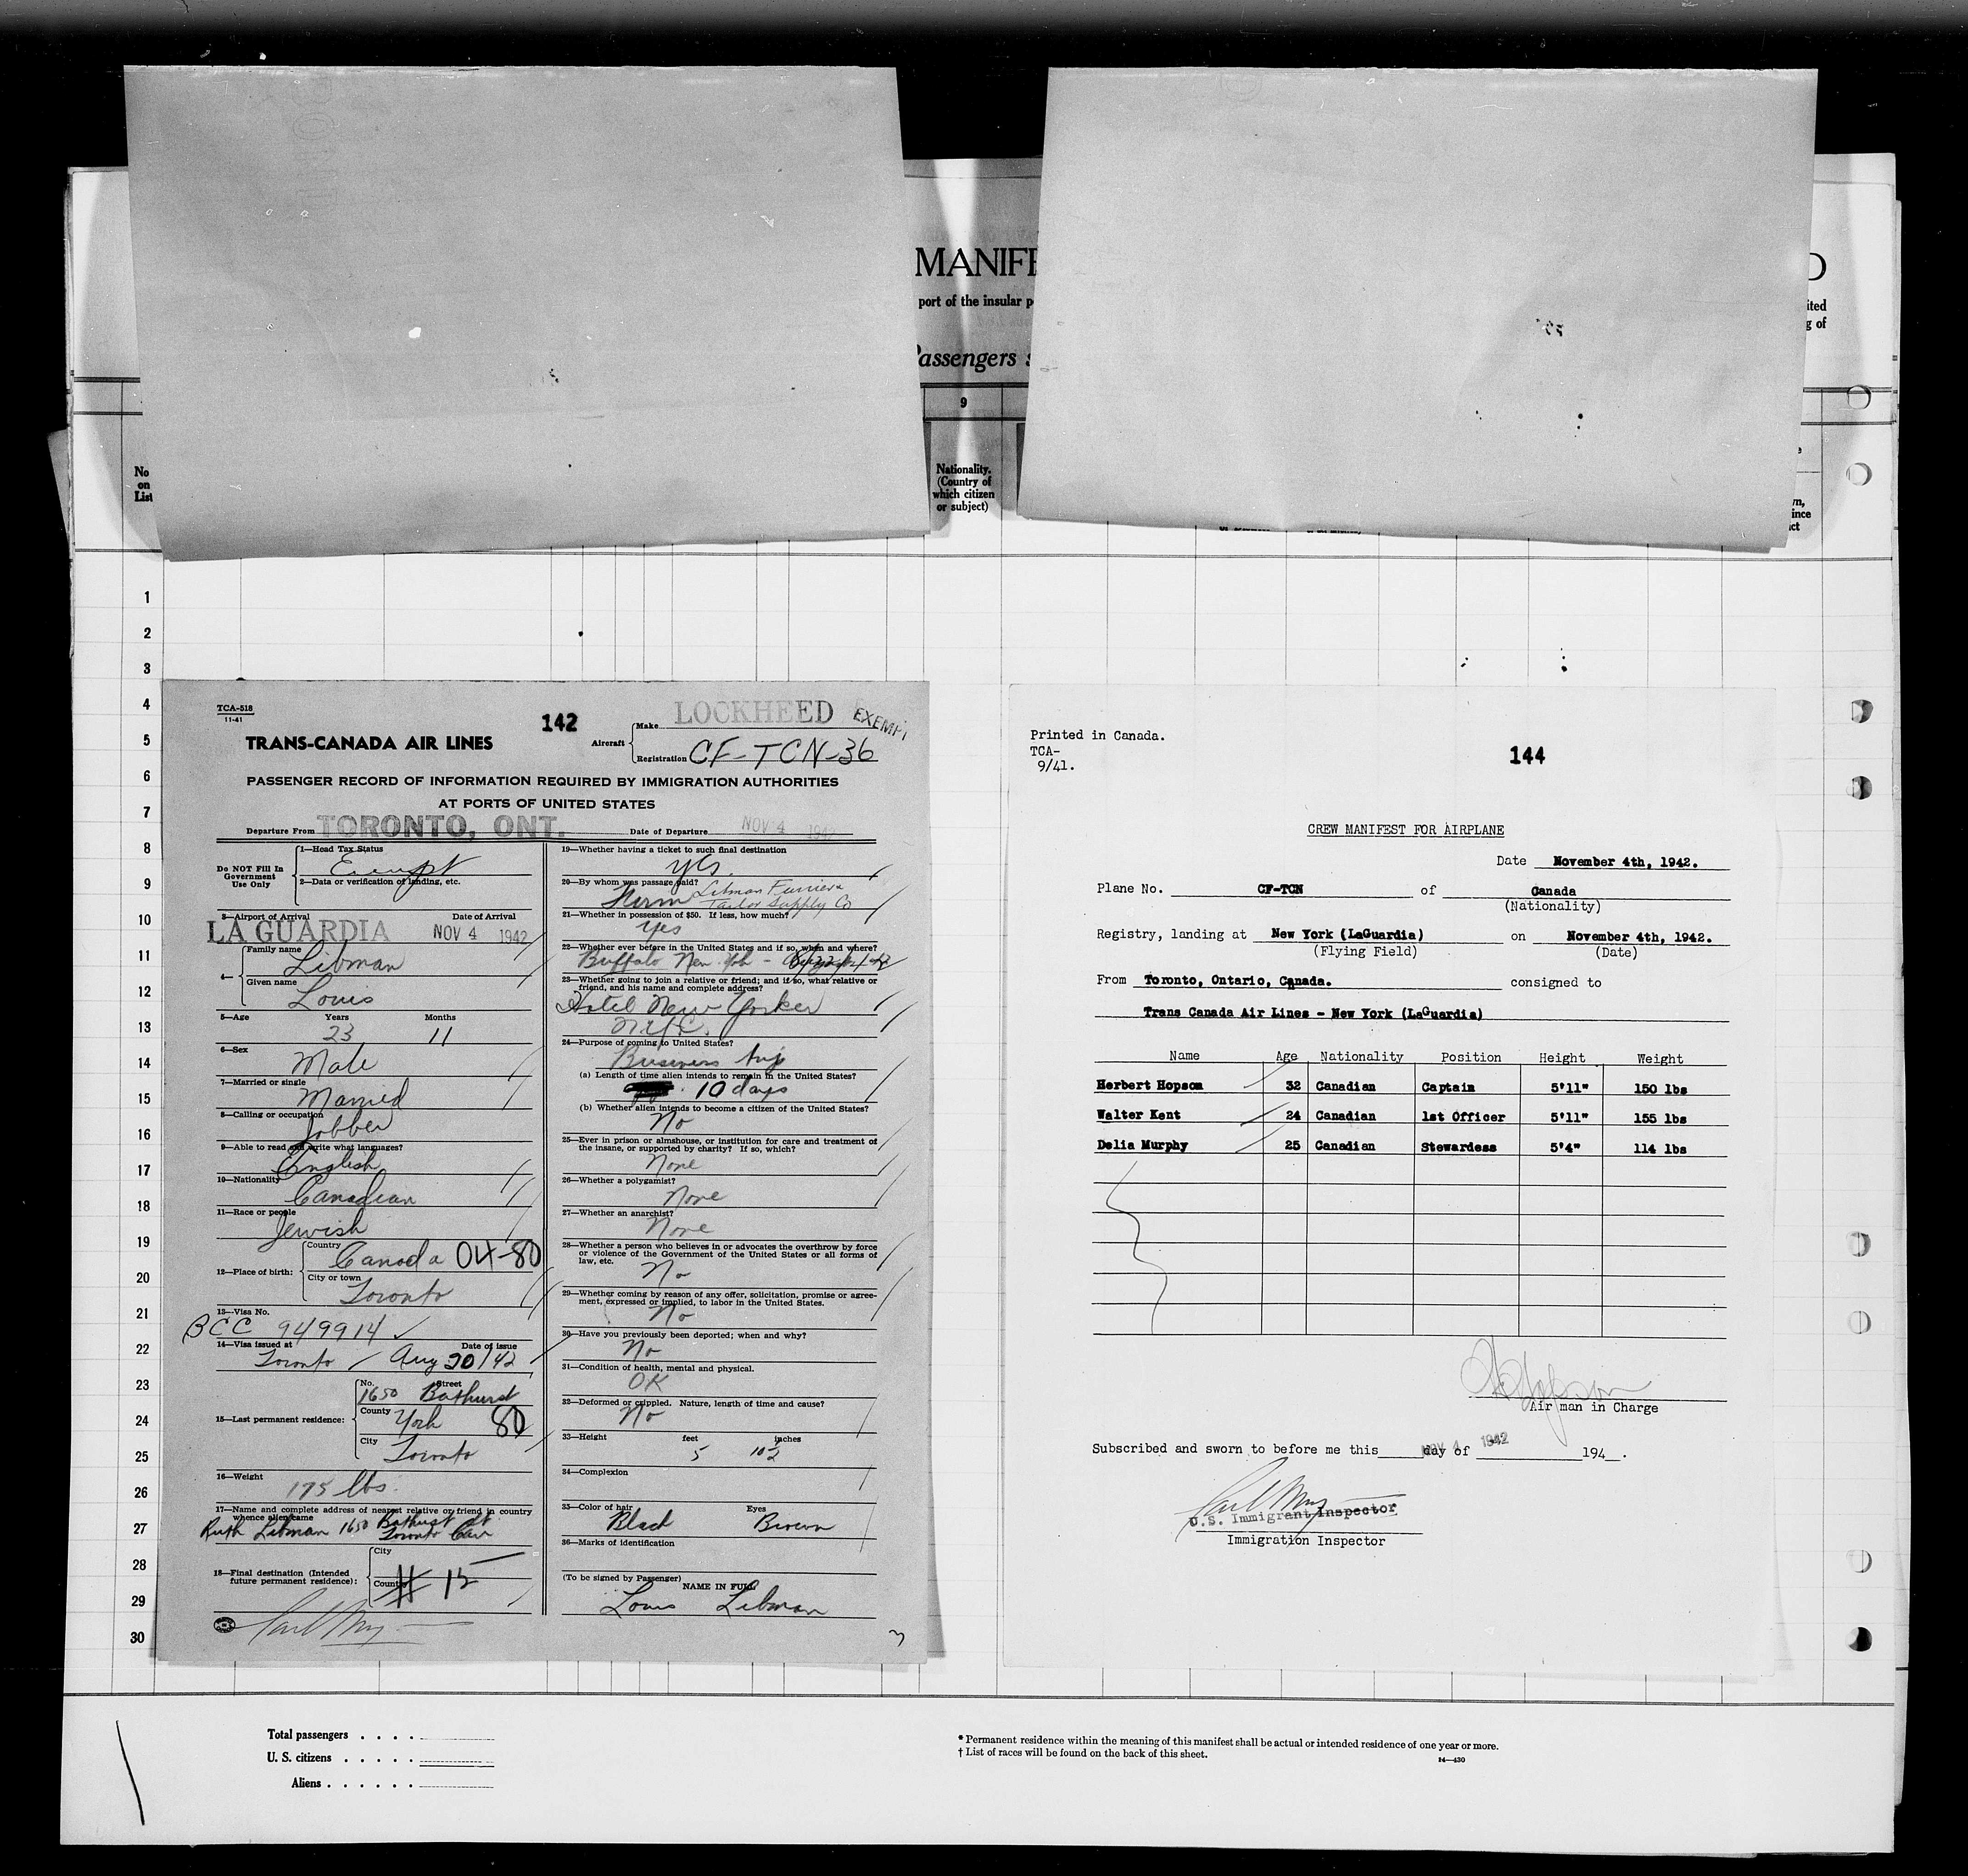 MANIFE
D
port of the insular p
ited
g of
Passengers s
9
No
on
List
Nationality.
(Country of
which citizen
or subject)
wn,
ince
ct
1
2
3
4
5
6
7
8
9
10
11
12
13
14
15
16
17
18
19
20
21
22
23
24
25
26
27
28
29
30
TCA-518
11-41
142
Aircraft
Make LOCKHEED EXEMPT
Registration CF-TCN-36
TRANS-CANADA AIR LINES
PASSENGER RECORD OF INFORMATION REQUIRED BY IMMIGRATION AUTHORITIES
AT PORTS OF UNITED STATES
Departure From TORONTO, ONT. Date of Departure NOV 4 1942
Do NOT Fill In
Government
Use Only
1—Head Tax Status
Exempt
2—Data or verification of landing, etc.
3—Airport of Arrival Date of Arrival
LA GUARDIA NOV 4 1942
4—
Family name
Libman
Given name
Louis
5—Age Years Months
23 11
6—Sex
Male
7—Married or single
Married
8—Calling or occupation
Jobber
9—Able to read and write what languages?
English
10—Nationality
Canadian
11—Race or people
Jewish
12—Place of birth:
Country
Canada 04-80
City or town
Toronto
13—Visa No.
BCC 949914
14—Visa issued at Date of issue
Toronto Aug 20/42
15—Last permanent residence:
No. Street
1650 Bathurst
County
York 80
City
Toronto
16—Weight
175 lbs.
17—Name and complete address of nearest relative or friend in country
whence alien came
Ruth Libman 1650 Bathurst St
Toronto Can
18—Final destination (Intended
future permanent residence):
City
County
# 15
19—Whether having a ticket to such final destination
yes.
20—By whom was passage paid?
Firm Libman Furriers
Tailor Supply Co
21—Whether in possession of $50. If less, how much?
Yes
22—Whether ever before in the United States and if so, when and where?
Buffalo New York -
23—Whether going to join a relative or friend; and if so, what relative or
friend, and his name and complete address?
Hotel New Yorker
N.Y.C.
24—Purpose of coming to United States?
Business trip
(a) Length of time alien intends to remain in the United States?
10 days
(b) Whether alien intends to become a citizen of the United States?
No
25—Ever in prison or almshouse, or institution for care and treatment of
the insane, or supported by charity? If so, which?
None
26—Whether a polygamist?
None
27—Whether an anarchist?
None
28—Whether a person who believes in or advocates the overthrow by force
or violence of the Government of the United States or all forms of
law, etc.
No
29—Whether coming by reason of any offer, solicitation, promise or agree-
ment, expressed or implied, to labor in the United States.
No
30—Have you previously been deported; when and why?
No
31—Condition of health, mental and physical.
OK
32—Deformed or crippled. Nature, length of time and cause?
No
33—Height feet inches
5 10½
34—Complexion
35—Color of hair Eyes
Black Brown
36—Marks of identification
(To be signed by Passenger)
NAME IN FULL
Louis Libman
3
Printed in Canada.
TCA-
9/41.
144
CREW MANIFEST FOR AIRPLANE
Date November 4th, 1942.
Plane No. CF-TCN of Canada
(Nationality)
Registry, landing at New York (LaGuardia) on November 4th, 1942.
(Flying Field) (Date)
From Toronto, Ontario, Canada. consigned to
Trans Canada Air Lines - New York (LaGuardia)
Name Age Nationality Position Height Weight
Herbert Hopson 32 Canadian Captain 5'11" 150 lbs
Walter Kent 24 Canadian 1st Officer 5'11" 155 lbs
Delia Murphy 25 Canadian Stewardess 5'4" 114 lbs
Air man in Charge
Subscribed and sworn to before me this NOV 4 day of 1942 194 .
U.S. Immigrant Inspector
Immigration Inspector
Total passengers . . . .
U. S. citizens . . . . .
Aliens . . . . . .
* Permanent residence within the meaning of this manifest shall be actual or intended residence of one year or more.
† List of races will be found on the back of this sheet.
14—430